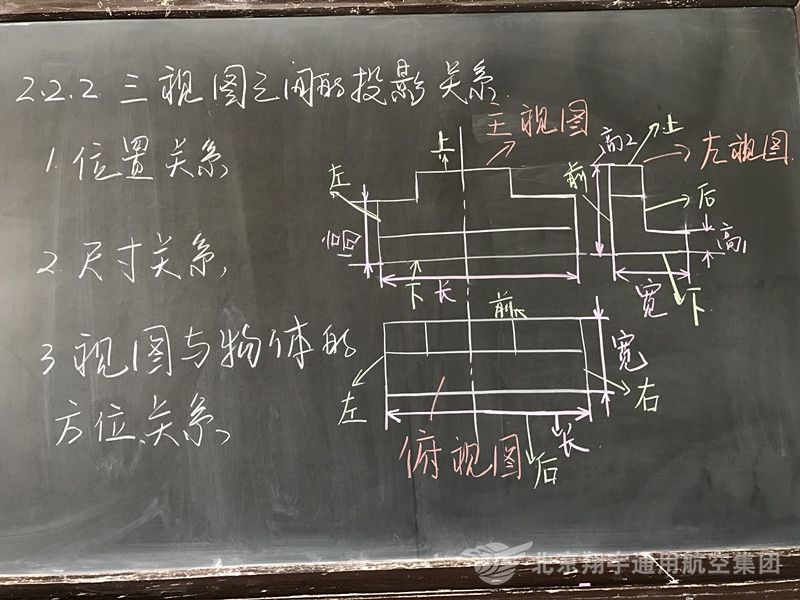 2.2.2 三视图之间的投影关系
1. 位置关系
2. 尺寸关系
3 视图与物体的
方位关系
主视图
上
左
高
下
长
高2
上
左视图
前
后
高1
宽
下
前
宽
左
右
俯视图
长
后
北京翔宇通用航空集团